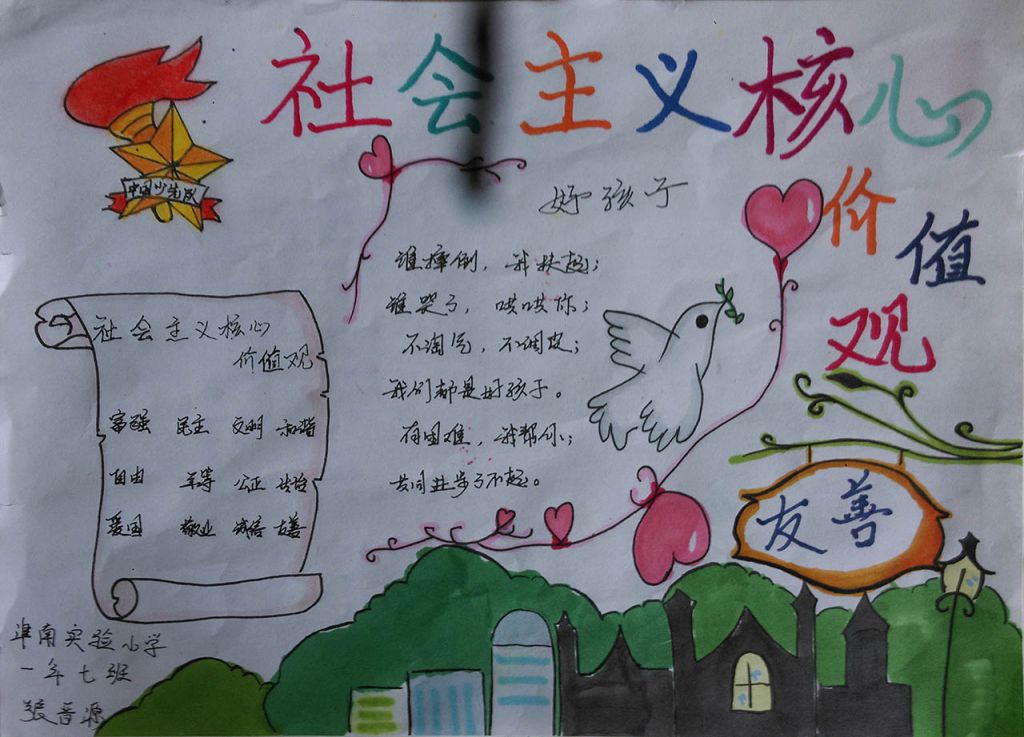 社会主义核心
价值观
中国少先队
好孩子
谁摔倒，我扶起；
谁哭了，哄哄你；
不淘气，不调皮；
我们都是好孩子。
有困难，我帮你；
共同进步了不起。
社会主义核心
价值观
富强 民主 文明 和谐
自由 平等 公正 法治
爱国 敬业 诚信 友善
友善
淮南实验小学
一年七班
张晋源